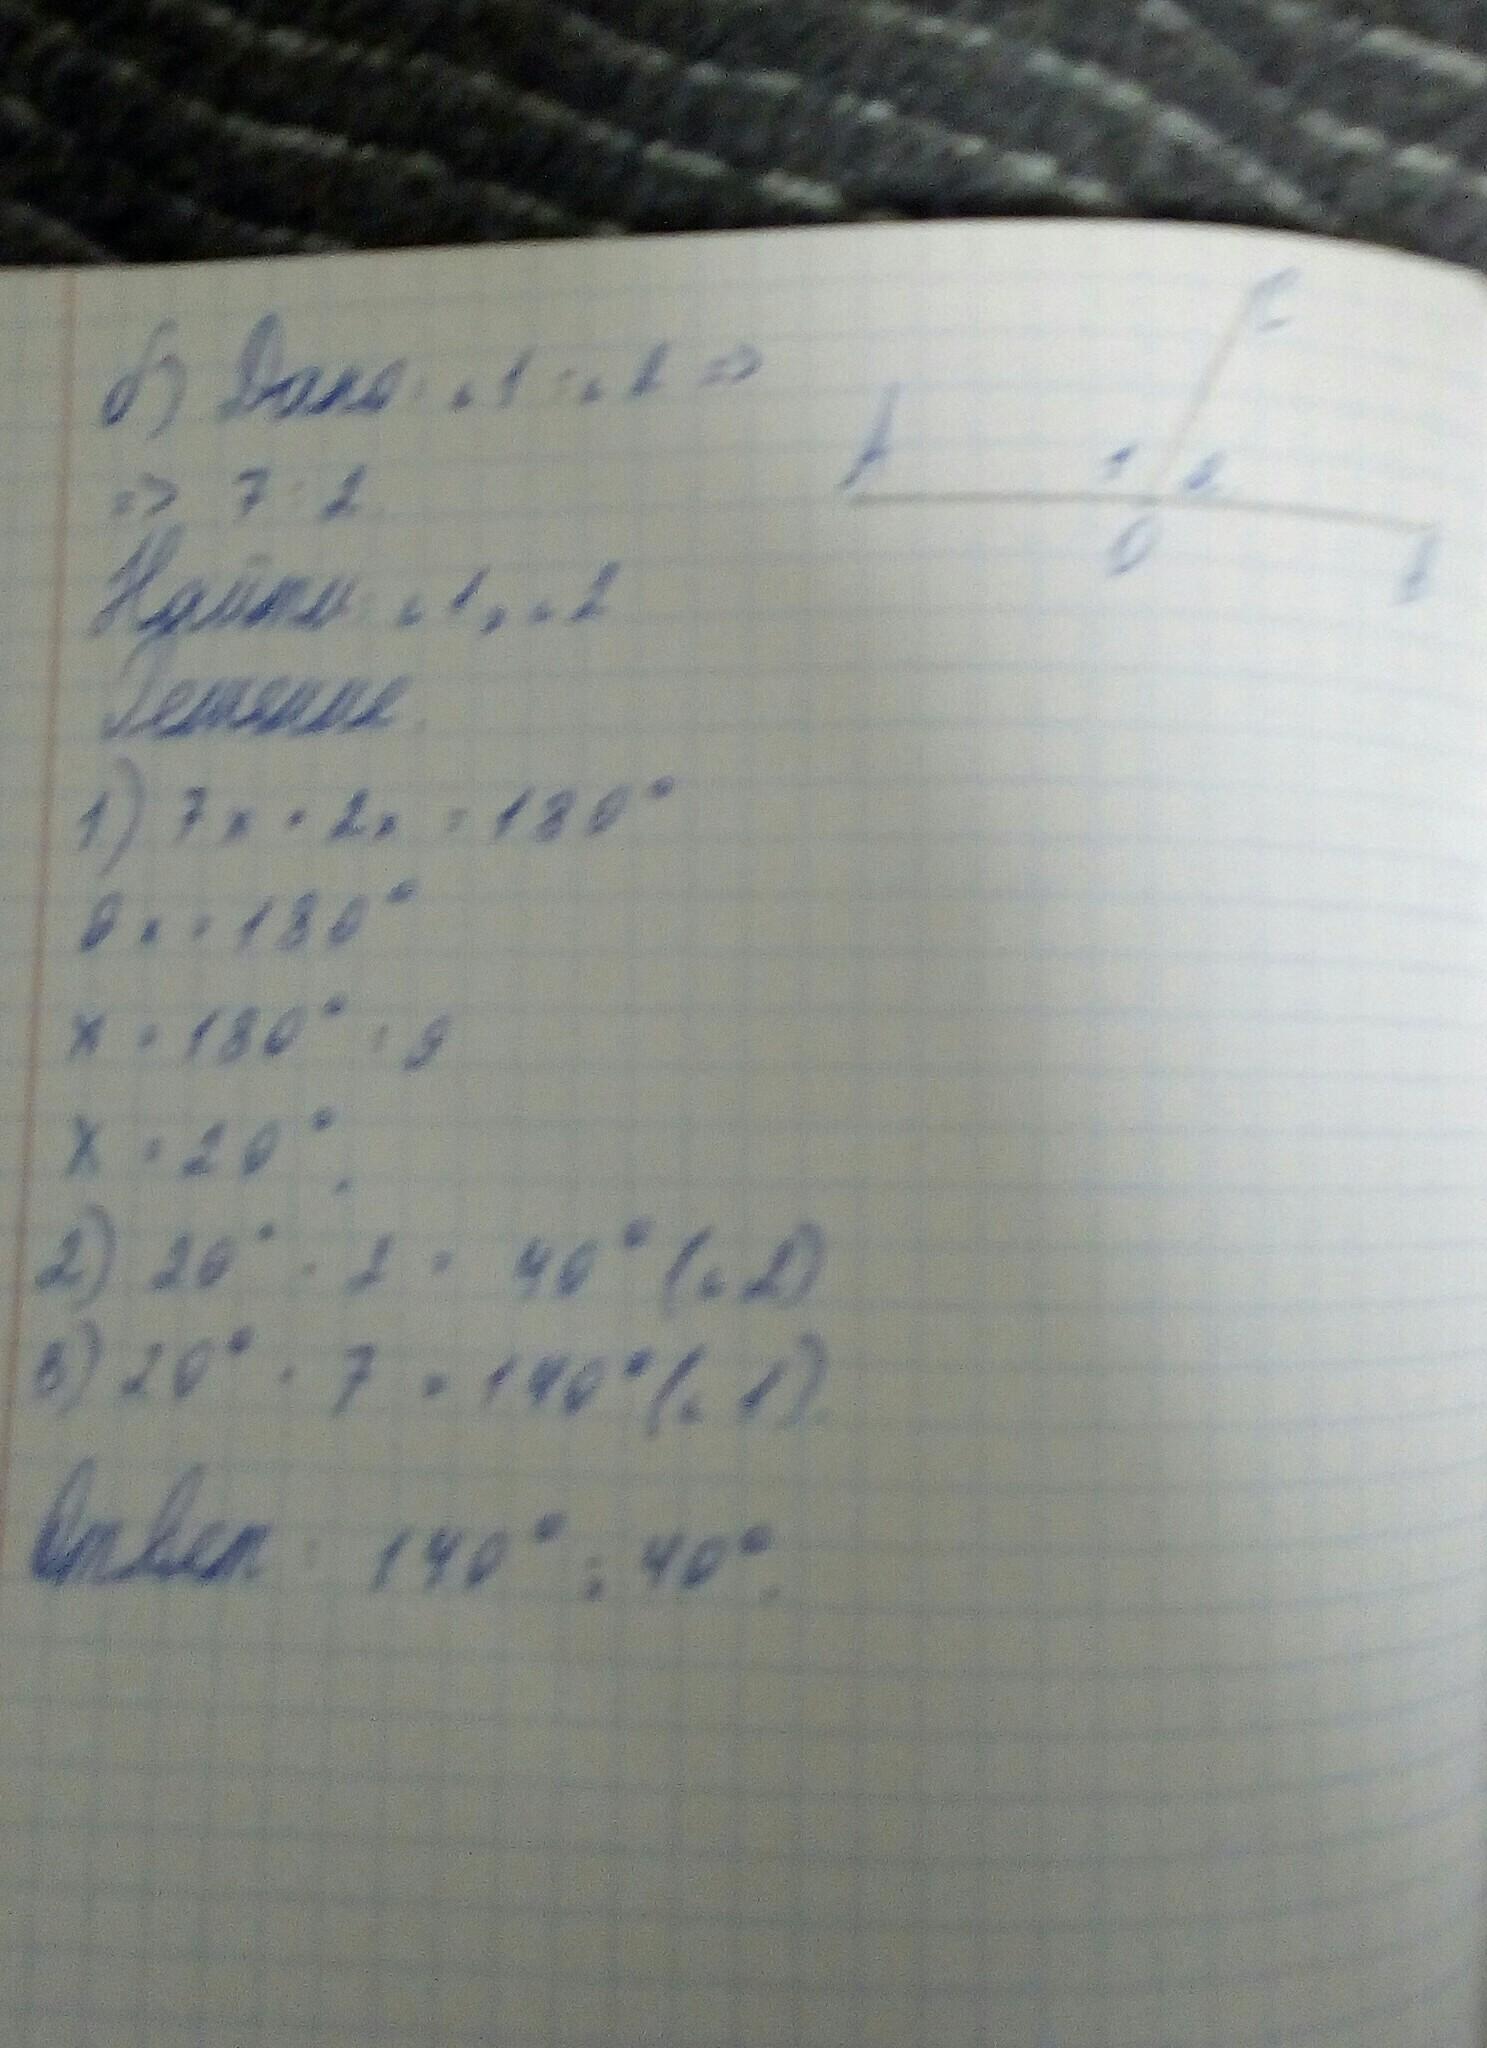 б) Дано: ∠1 : ∠2 =>
=> 7 : 2.
Найти: ∠1, ∠2
Решение.
1) 7x + 2x = 180°
9x = 180°
x = 180° : 9
x = 20°.
2) 20° · 2 = 40° (∠2)
3) 20° · 7 = 140° (∠1).
Ответ: 140° ; 40°.
C
A
1 2
O
B